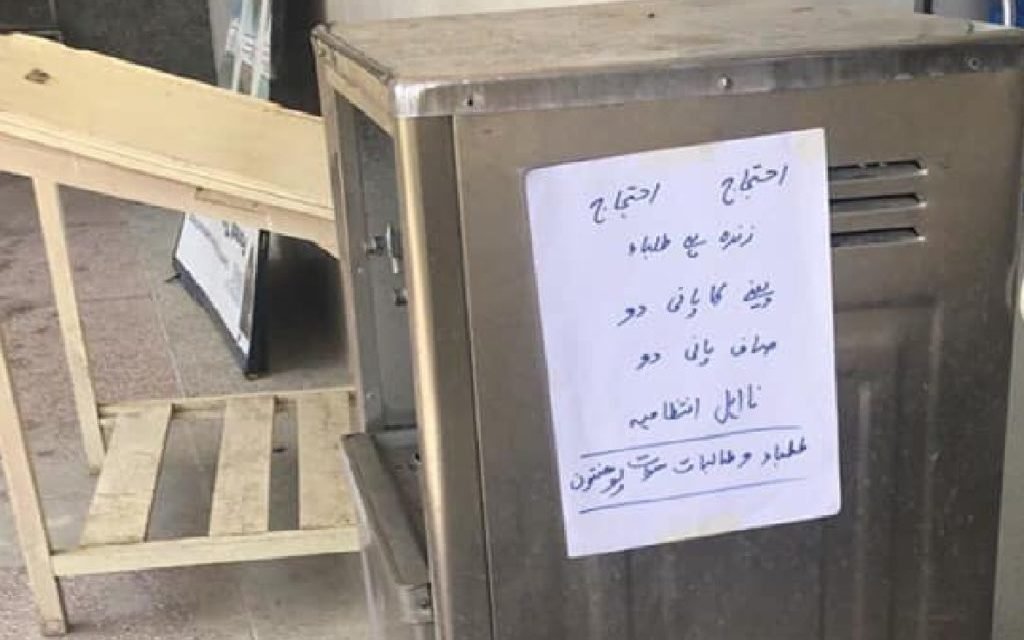 احتجاج احتجاج
زندہ ہے طلباء
پینے کا پانی دو
صاف پانی دو
نااہل انتظامیہ
طلباء و طالبات سوات پوهنتون